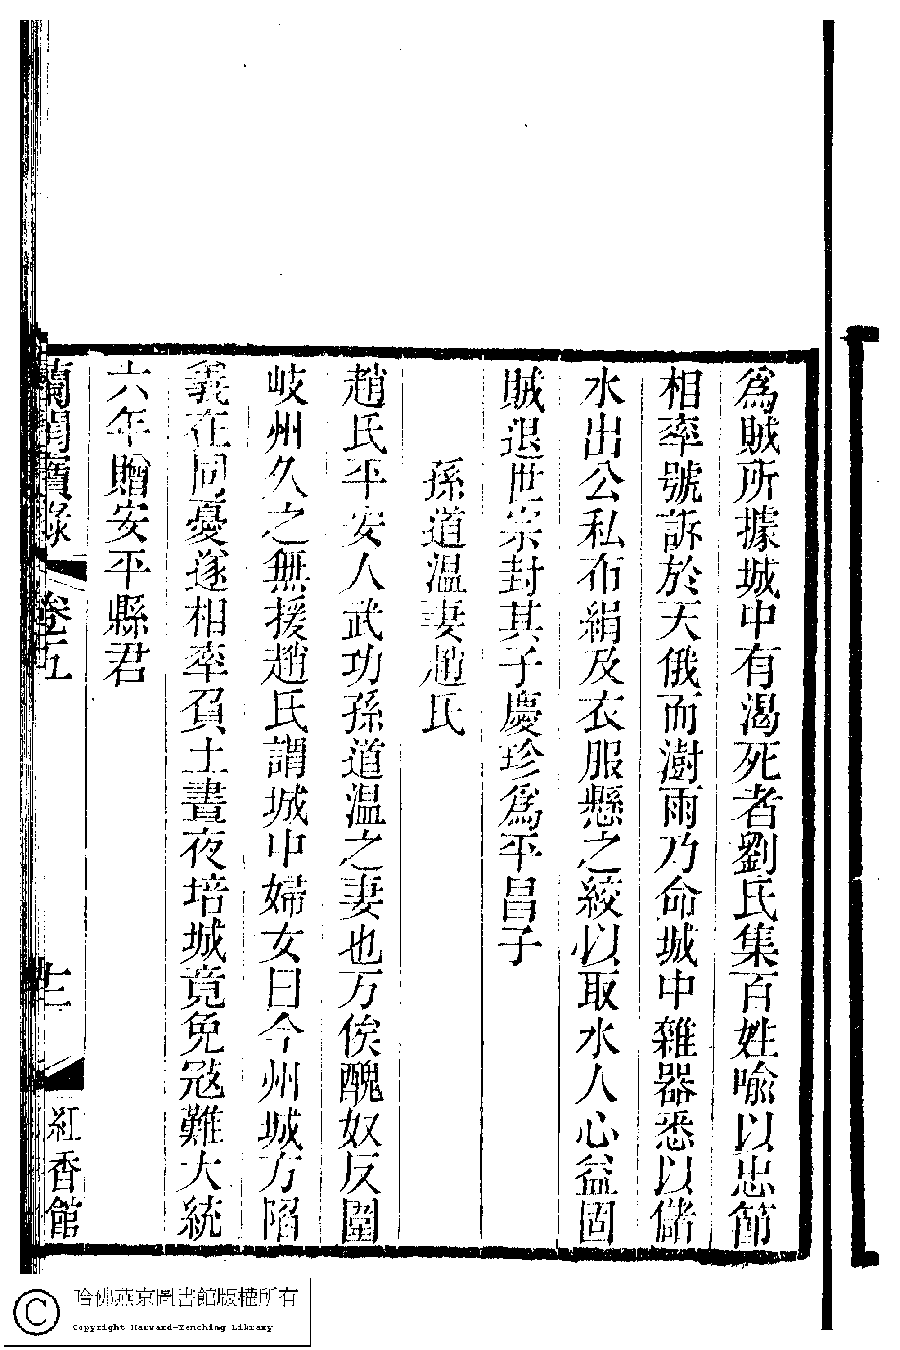 為賊所據城中有渴死者劉氏集百姓喻以忠節
相率號訴於天俄而澍雨乃命城中雜器悉以儲
水出公私布絹及衣服懸之絞以取水人心益固
賊退世宗封其子慶珍為平昌子
孫道溫妻趙氏
趙氏平安人武功孫道溫之妻也万俟醜奴反圍
岐州久之無援趙氏謂城中婦女曰今州城方陷
義在同憂遂相率負土晝夜培城竟免寇難大統
六年贈安平縣君
蘭閨寶錄
卷五
十二
紅香館
哈佛燕京圖書館版權所有
Copyright Harvard-Yenching Library